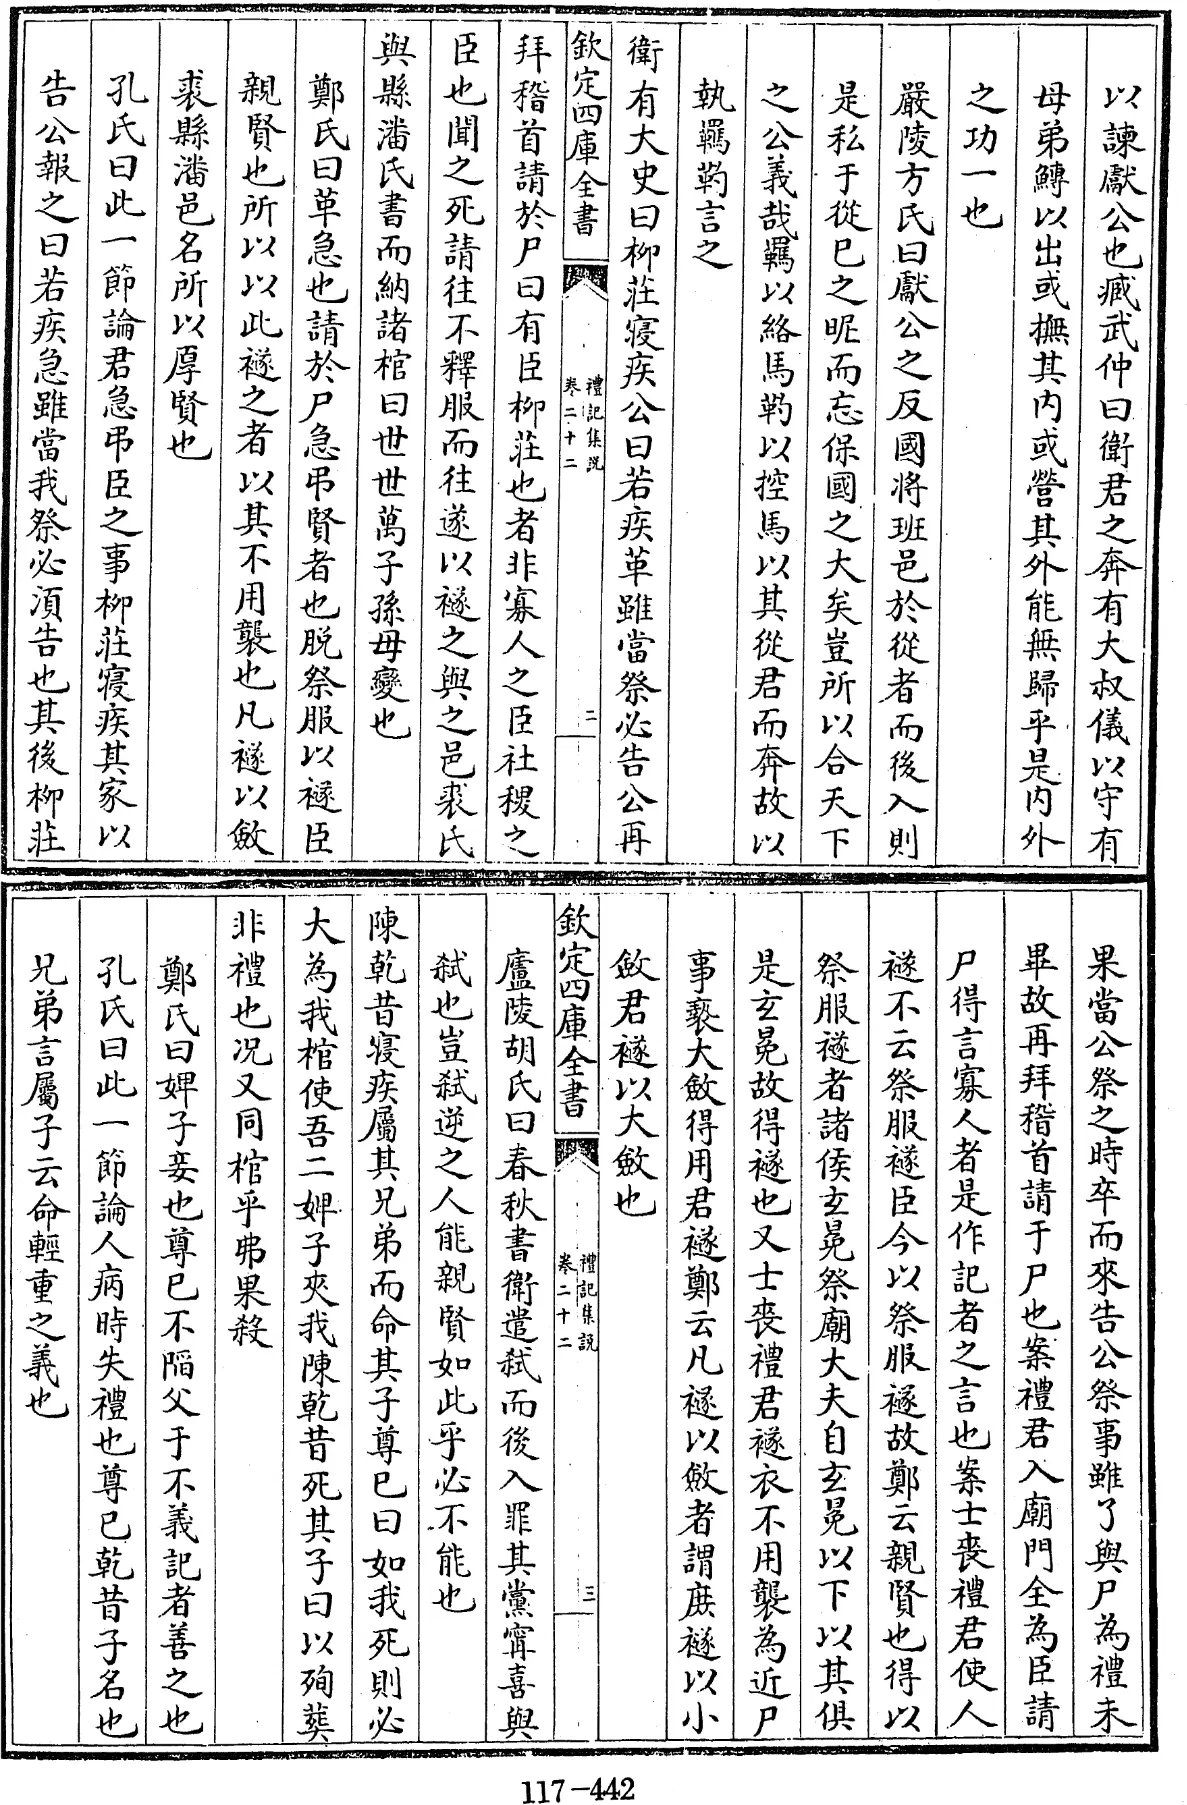 以諫獻公也臧武仲曰衛君之奔有大叔儀以守有
母弟鱄以出或撫其内或營其外能無歸乎是内外
之功一也
嚴陵方氏曰獻公之反國將班邑於從者而後入則
是私于從已之昵而忘保國之大矣豈所以合天下
之公義哉羈以絡馬靮以控馬以其從君而奔故以
執羈靮言之
衛有大史曰柳莊寢疾公曰若疾革雖當祭必告公再
欽定四庫全書
禮記集説
卷二十二
二
拜稽首請於尸曰有臣柳莊也者非寡人之臣社稷之
臣也聞之死請往不釋服而往遂以襚之與之邑裘氏
與縣潘氏書而納諸棺曰世世萬子孫毋變也
鄭氏曰革急也請於尸急弔賢者也脱祭服以襚臣
親賢也所以以此襚之者以其不用襲也凡襚以斂
裘縣潘邑名所以厚賢也
孔氏曰此一節論君急弔臣之事柳莊寢疾其家以
告公報之曰若疾急雖當我祭必湏告也其後柳莊
果當公祭之時卒而來告公祭事雖了與尸為禮未
畢故再拜稽首請于尸也案禮君入廟門全為臣請
尸得言寡人者是作記者之言也案士喪禮君使人
襚不云祭服襚臣今以祭服襚故鄭云親賢也得以
祭服襚者諸侯玄冕祭廟大夫自玄冕以下以其俱
是玄冕故得襚也又士喪禮君襚衣不用襲為近尸
事褻大斂得用君襚鄭云凡襚以斂者謂庶襚以小
斂君襚以大斂也
欽定四庫全書
禮記集説
卷二十二
三
廬陵胡氏曰春秋書衛遣弑而後入罪其黨甯喜與
弑也豈弑逆之人能親賢如此乎必不能也
陳乾昔寢疾屬其兄弟而命其子尊已曰如我死則必
大為我棺使吾二婢子夾我陳乾昔死其子曰以殉葬
非禮也况又同棺乎弗果殺
鄭氏曰婢子妾也尊已不陷父于不義記者善之也
孔氏曰此一節論人病時失禮也尊已乾昔子名也
兄弟言屬子云命輕重之義也
117-442